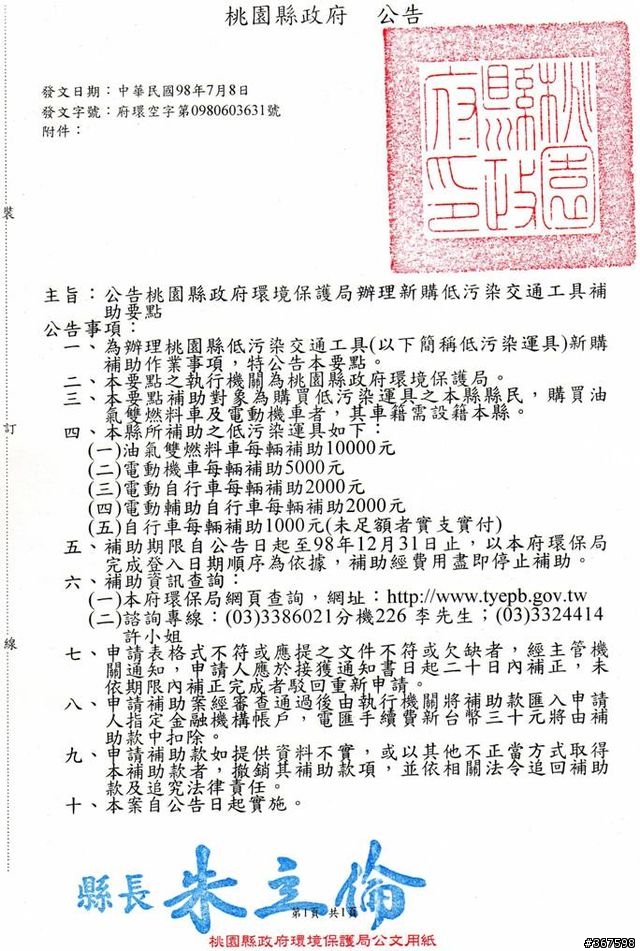 桃園縣政府　公告
桃園縣政府印
發文日期：中華民國98年7月8日
發文字號：府環空字第0980603631號
附件：
裝
訂
線
主旨：公告桃園縣政府環境保護局辦理新購低污染交通工具補
助要點
公告事項：
一、為辦理桃園縣低污染交通工具(以下簡稱低污染運具)新購
補助作業事項，特公告本要點。
二、本要點之執行機關為桃園縣政府環境保護局。
三、本要點補助對象為購買低污染運具之本縣縣民，購買油
氣雙燃料車及電動機車者，其車籍需設籍本縣。
四、本縣所補助之低污染運具如下：
(一)油氣雙燃料車每輛補助10000元
(二)電動機車每輛補助5000元
(三)電動自行車每輛補助2000元
(四)電動輔助自行車每輛補助2000元
(五)自行車每輛補助1000元(未足額者實支實付)
五、補助期限自公告日起至98年12月31日止，以本府環保局
完成登入日期順序為依據，補助經費用盡即停止補助。
六、補助資訊查詢：
(一)本府環保局網頁查詢，網址：http://www.tyepb.gov.tw
(二)諮詢專線：(03)3386021分機226 李先生；(03)3324414
許小姐
七、申請表格式不符或應提之文件不符或欠缺者，經主管機
關通知，申請人應於接獲通知書日起二十日內補正，未
依期限內補正完成者駁回重新申請。
八、申請補助案經審查通過後由執行機關將補助款匯入申請
人指定金融機構帳戶，電匯手續費新台幣三十元將由補
助款中扣除。
九、申請補助款如提供資料不實，或以其他不正當方式取得
本補助款者，撤銷其補助款項，並依相關法令追回補助
款及追究法律責任。
十、本案自公告日起實施。
縣長 朱立倫
第1頁 共1頁
桃園縣政府環境保護局公文用紙
#367598